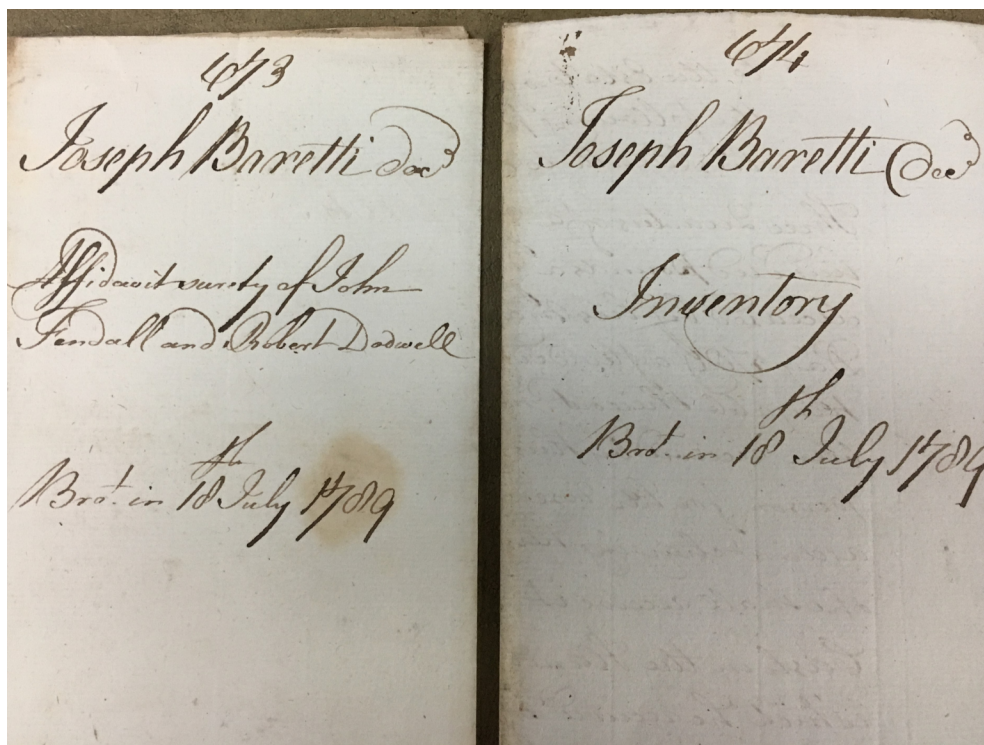 673
Joseph Baretti dec̃d
Affidavit surety of John
Fendall and Robert Dodwell
Bro.t in 18th July 1789
674
Joseph Baretti dec̃d
Inventory
Bro.t in 18th July 1789